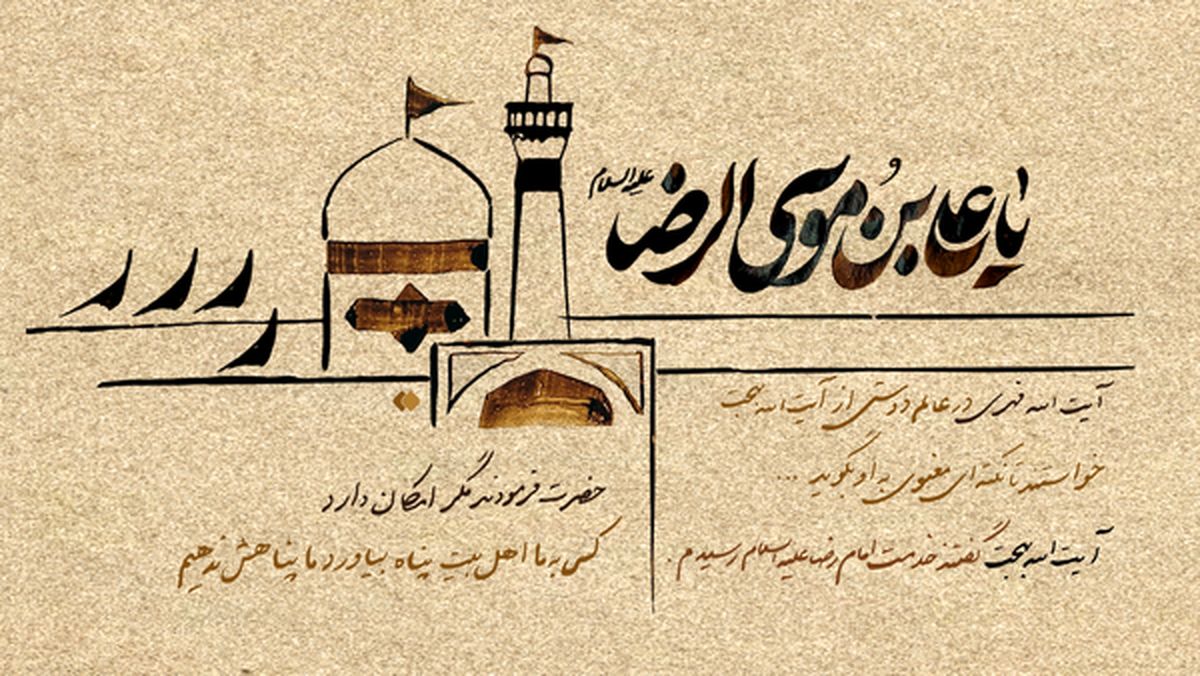 یا علی بن موسی الرضا علیه السلام
آیت الله فهری در عالم دوستی از آیت الله بهجت
خواستند تا نکته ای معنوی به او بگوید ...
آیت الله بهجت گفتند خدمت امام رضا علیه السلام رسیدم .
حضرت فرمودند مگر امکان دارد
کسی به ما اهل بیت پناه بیاورد ما پناهش ندهیم